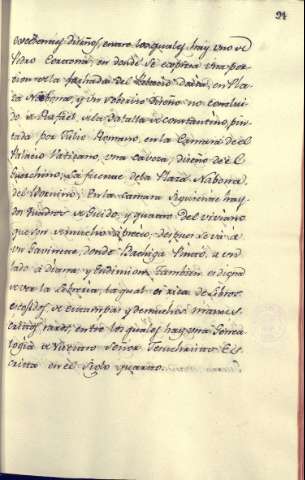 94
excelentes diseños, entre los quales, hay uno de
Pedro Cortona, en donde se expresa una por-
cion de la fachada del Palacio en Pla-
za Nabona, y un soberbio diseño no conclui-
do de Rafael, de la Batalla de Constantino, pin-
tada por Julio Romano, en la Camara del
Palacio Vaticano, una caveza, diseño de el
Guerchino, La fuente de la Plaza Nabona,
del Bernino; En la camara siguiente hay
dos quadros de Guido, y quatro del viviano
que son de mucho aprecio, despues se va a
un Gavinete, donde Bachiga Pintó, a un
lado a Diana, y Endimion, tambien es digna
de ver la Libreria, la qual es rica de Libros
escojidos, de estampas, y de muchos manus-
critos raros, entre los quales, hay una Genea-
logia de Nuestro Señor Jesuchristo Es-
crita en el Siglo quarto.